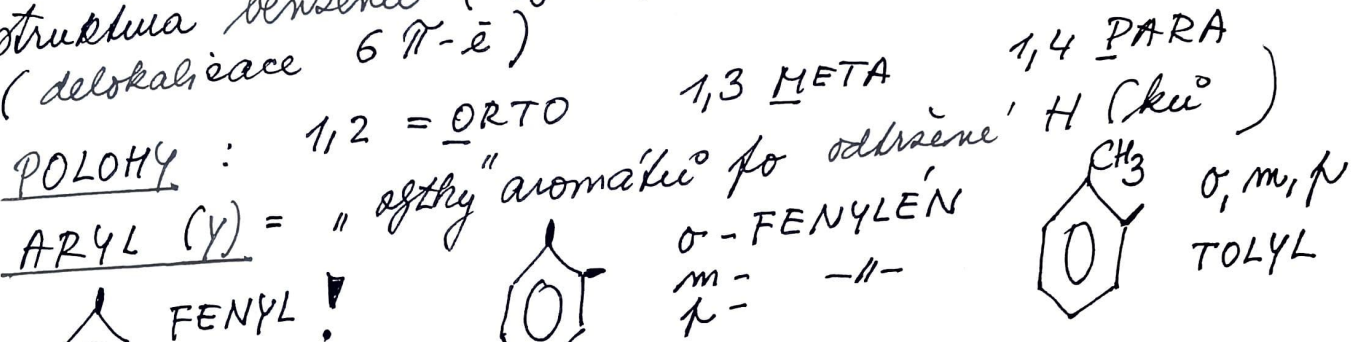 struktura benzenu (
(delokalizace 6 π-ē)
POLOHY : 1,2 = ORTO 1,3 META 1,4 PARA
ARYL (y) = " zbytky" aromátů po odtržení H (ků)
FENYL !
o - FENYLÉN
m - -//-
p -
CH3
o, m, p
TOLYL